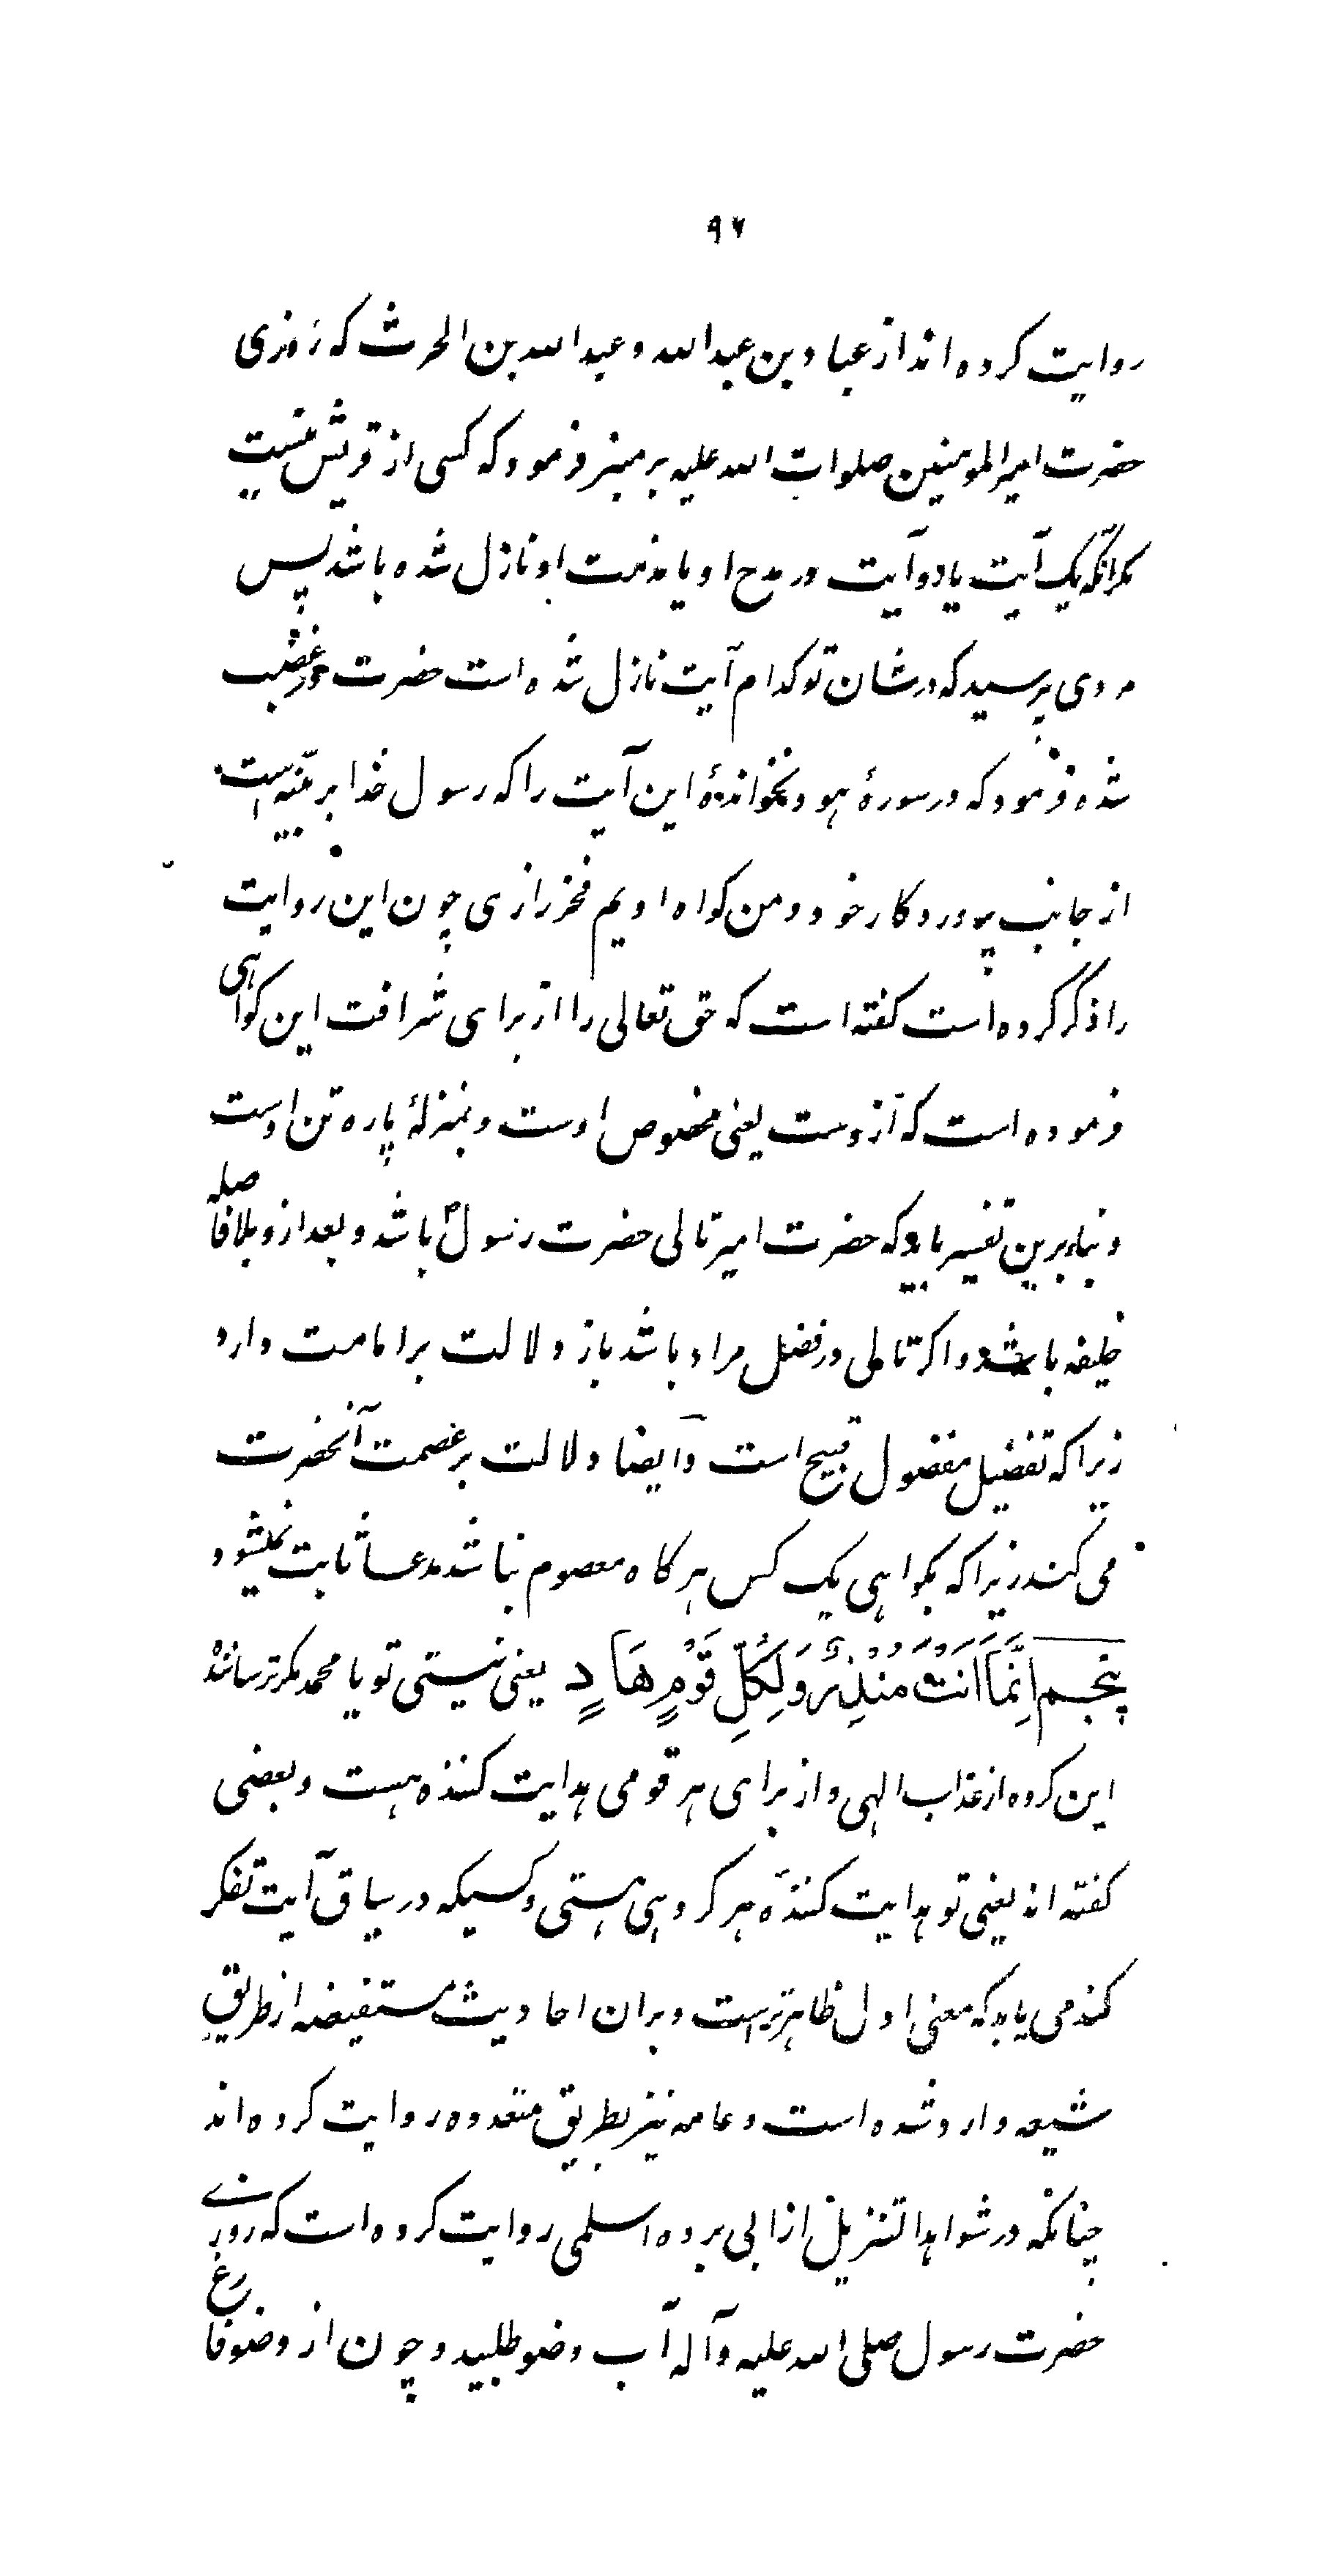 ۹۶
روایت کرده اند از عباد بن عبدالله و عبدالله بن الحرث که روزی
حضرت امیرالمومنین صلوات الله علیه بر منبر فرمود که کسی از قریش نیست
مکر انکه یک آیت یا دو آیت در مدح او یا مذمت او نازل شده باشد پس
مردی پرسید که در شان تو کدام آیت نازل شده است حضرت در غضب
شده فرمود که در سورهٔ هود نخواندهٔ این آیت را که رسول خدا بر بیّنه است
از جانب پروردکار خود و من کواه اویم فخر رازی چون این روایت
را ذکر کرده است کفته است که حق تعالی را از برای شرافت این کواهی
فرموده است که ازوست یعنی مخصوص اوست و بمنزلهٔ پاره تن اوست
و بنابرین تفسیر باید که حضرت امیر تالی حضرت رسولؐ باشد و بعد ازو بلافاصله
خلیفه باشد و اکر تالی در فضل مراد باشد باز دلالت بر امامت دارد
زیرا که تفضیل مفضول قبیح است و ایضا دلالت بر عصمت آنحضرت
می کند زیرا که بکواهی یک کس هرکاه معصوم نباشد مدعا ثابت نمیشود
پنجم اِنَّمَا اَنْتَ مُنْذِرٌ وَلِکُلِّ قَوْمٍ هَادٍ یعنی نیستی تو یا محمد مکر ترسانندهٔ
این کروه از عذاب الهی و از برای هر قومی هدایت کننده هست و بعضی
کفته اند یعنی تو هدایت کنندهٔ هر کروهی هستی و کسیکه در سیاق آیت تفکر
کند می یابد که معنی اول ظاهرتر است و بران احادیث مستفیضه از طریق
شیعه وارد شده است و عامه نیز بطریق متعدده روایت کرده اند
چنانکه در شواهد التنزیل از ابی برده اسلمی روایت کرده است که روزے
حضرت رسول صلی الله علیه وآله آب وضو طلبید و چون از وضو فارغ